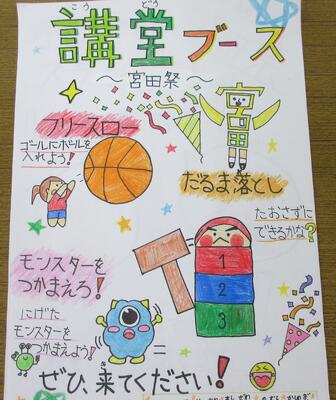 こう どう
講堂ブース
～宮田祭～
宮田
フリースロー
ゴールにボールを
入れよう!
だるま落とし
たおさずに
できるかな?
1
2
3
モンスターを
つかまえろ!
にげた
モンスターを
つかまえよう!
ぜひ、来てください!